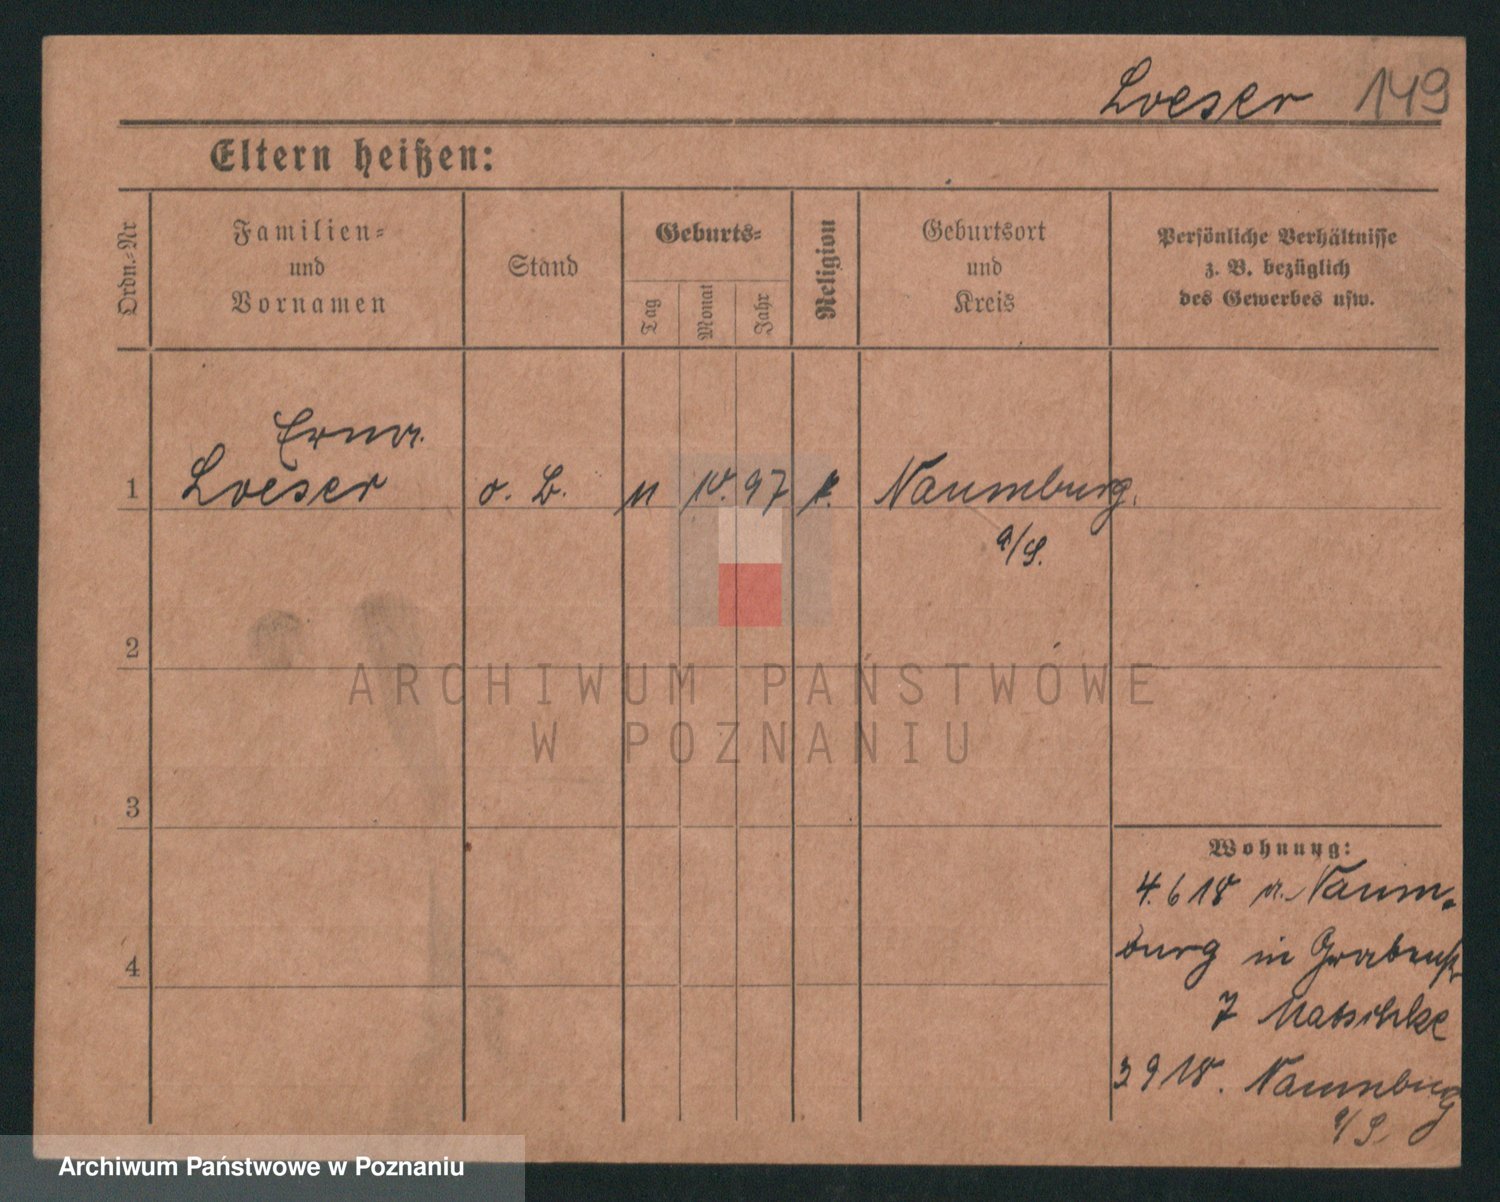 Loeser 149
Eltern heißen:
Ordn.-Nr
Familien-
und
Vornamen
Stand
Geburts-
Tag
Monat
Jahr
Religion
Geburtsort
und
Kreis
Persönliche Verhältnisse
z. B. bezüglich
des Gewerbes usw.
Erna
1 Loeser o. B. 11 10. 97 Naumburg
a/S.
2
3
4
Wohnung:
4. 6 18 a. Naum-
burg in Grabenstr
7 Matschke
3 9 18. Naumburg
a/S.
ARCHIWUM PAŃSTWOWE
W POZNANIU
Archiwum Państwowe w Poznaniu